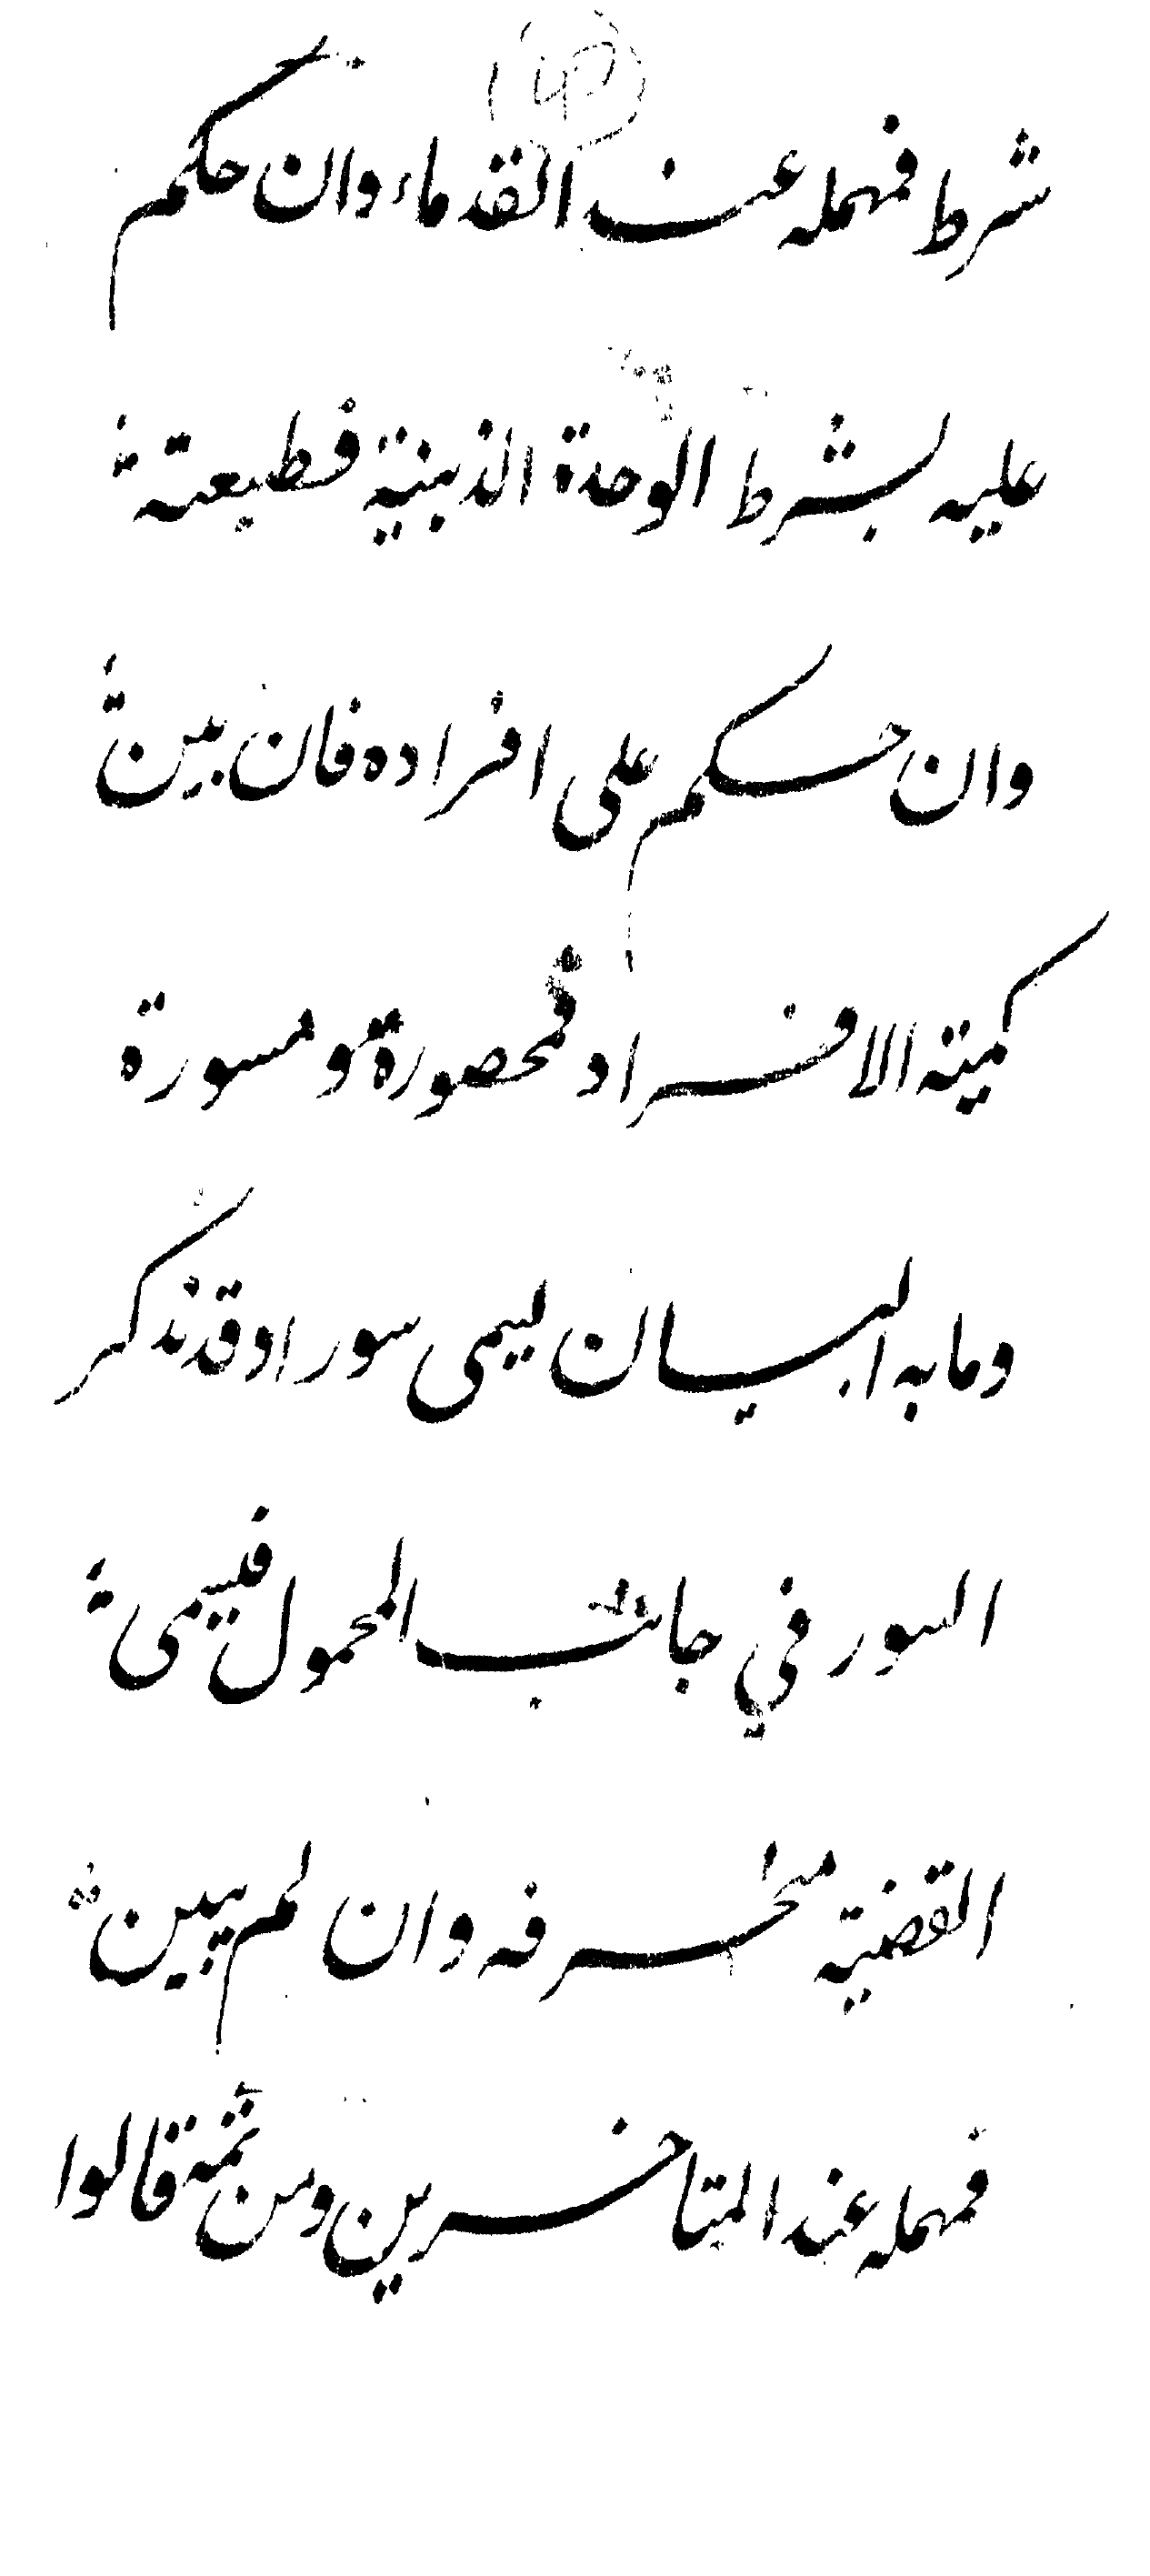 شرط فمهمله عند القدماء وان حكم
عليه بشرط الوحدة الذهنية فطبيعة
وان حكم على افراده فان بين
كمية الافراد فمحصورة و مسورة
وما به البيان ليسمى سورا وقد نذكر
السور في جانب المحمول فيسمى
القضية منحرفه وان لم يبين
فمهمله عند المتاخرين ومن ثمة قالوا